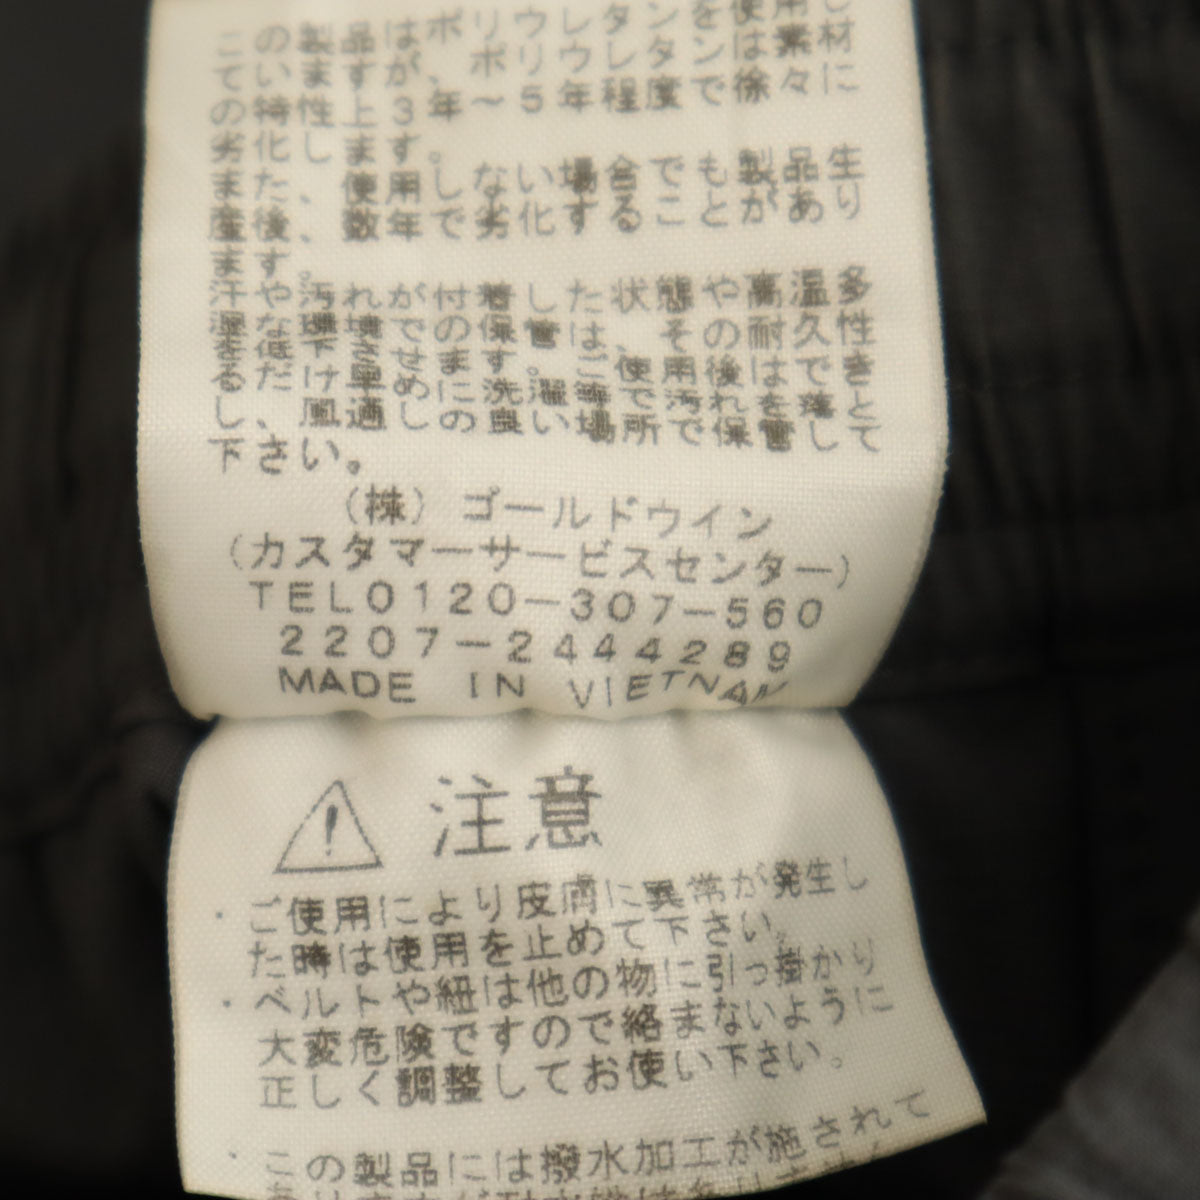 この製品はポリウレタンを使用し
ています が、ポリウレタンは素材
の特性上3年～5年程度で徐々に
劣化します。
また、使用しない場合でも製品生
産後、数年で劣化することがあり
ます。
汗や汚れが付着した状態や高温多
湿な環境での保管は、その耐久性
を低下させます。ご使用後はできる
だけ早めに洗濯等で汚れを落と
し、風通しの良い場所で保管して
下さい。
(株)ゴールドウイン
(カスタマーサービスセンター)
TEL0120-307-560
2207-2444289
MADE IN VIETNAM
注意
・ご使用により皮膚に異常が発生し
た時は使用を止めて下さい。
・ベルトや紐は他の物に引っ掛かり
大変危険ですので絡まないように
正しく調整してお使い下さい。
・この製品には撥水加工が施されて